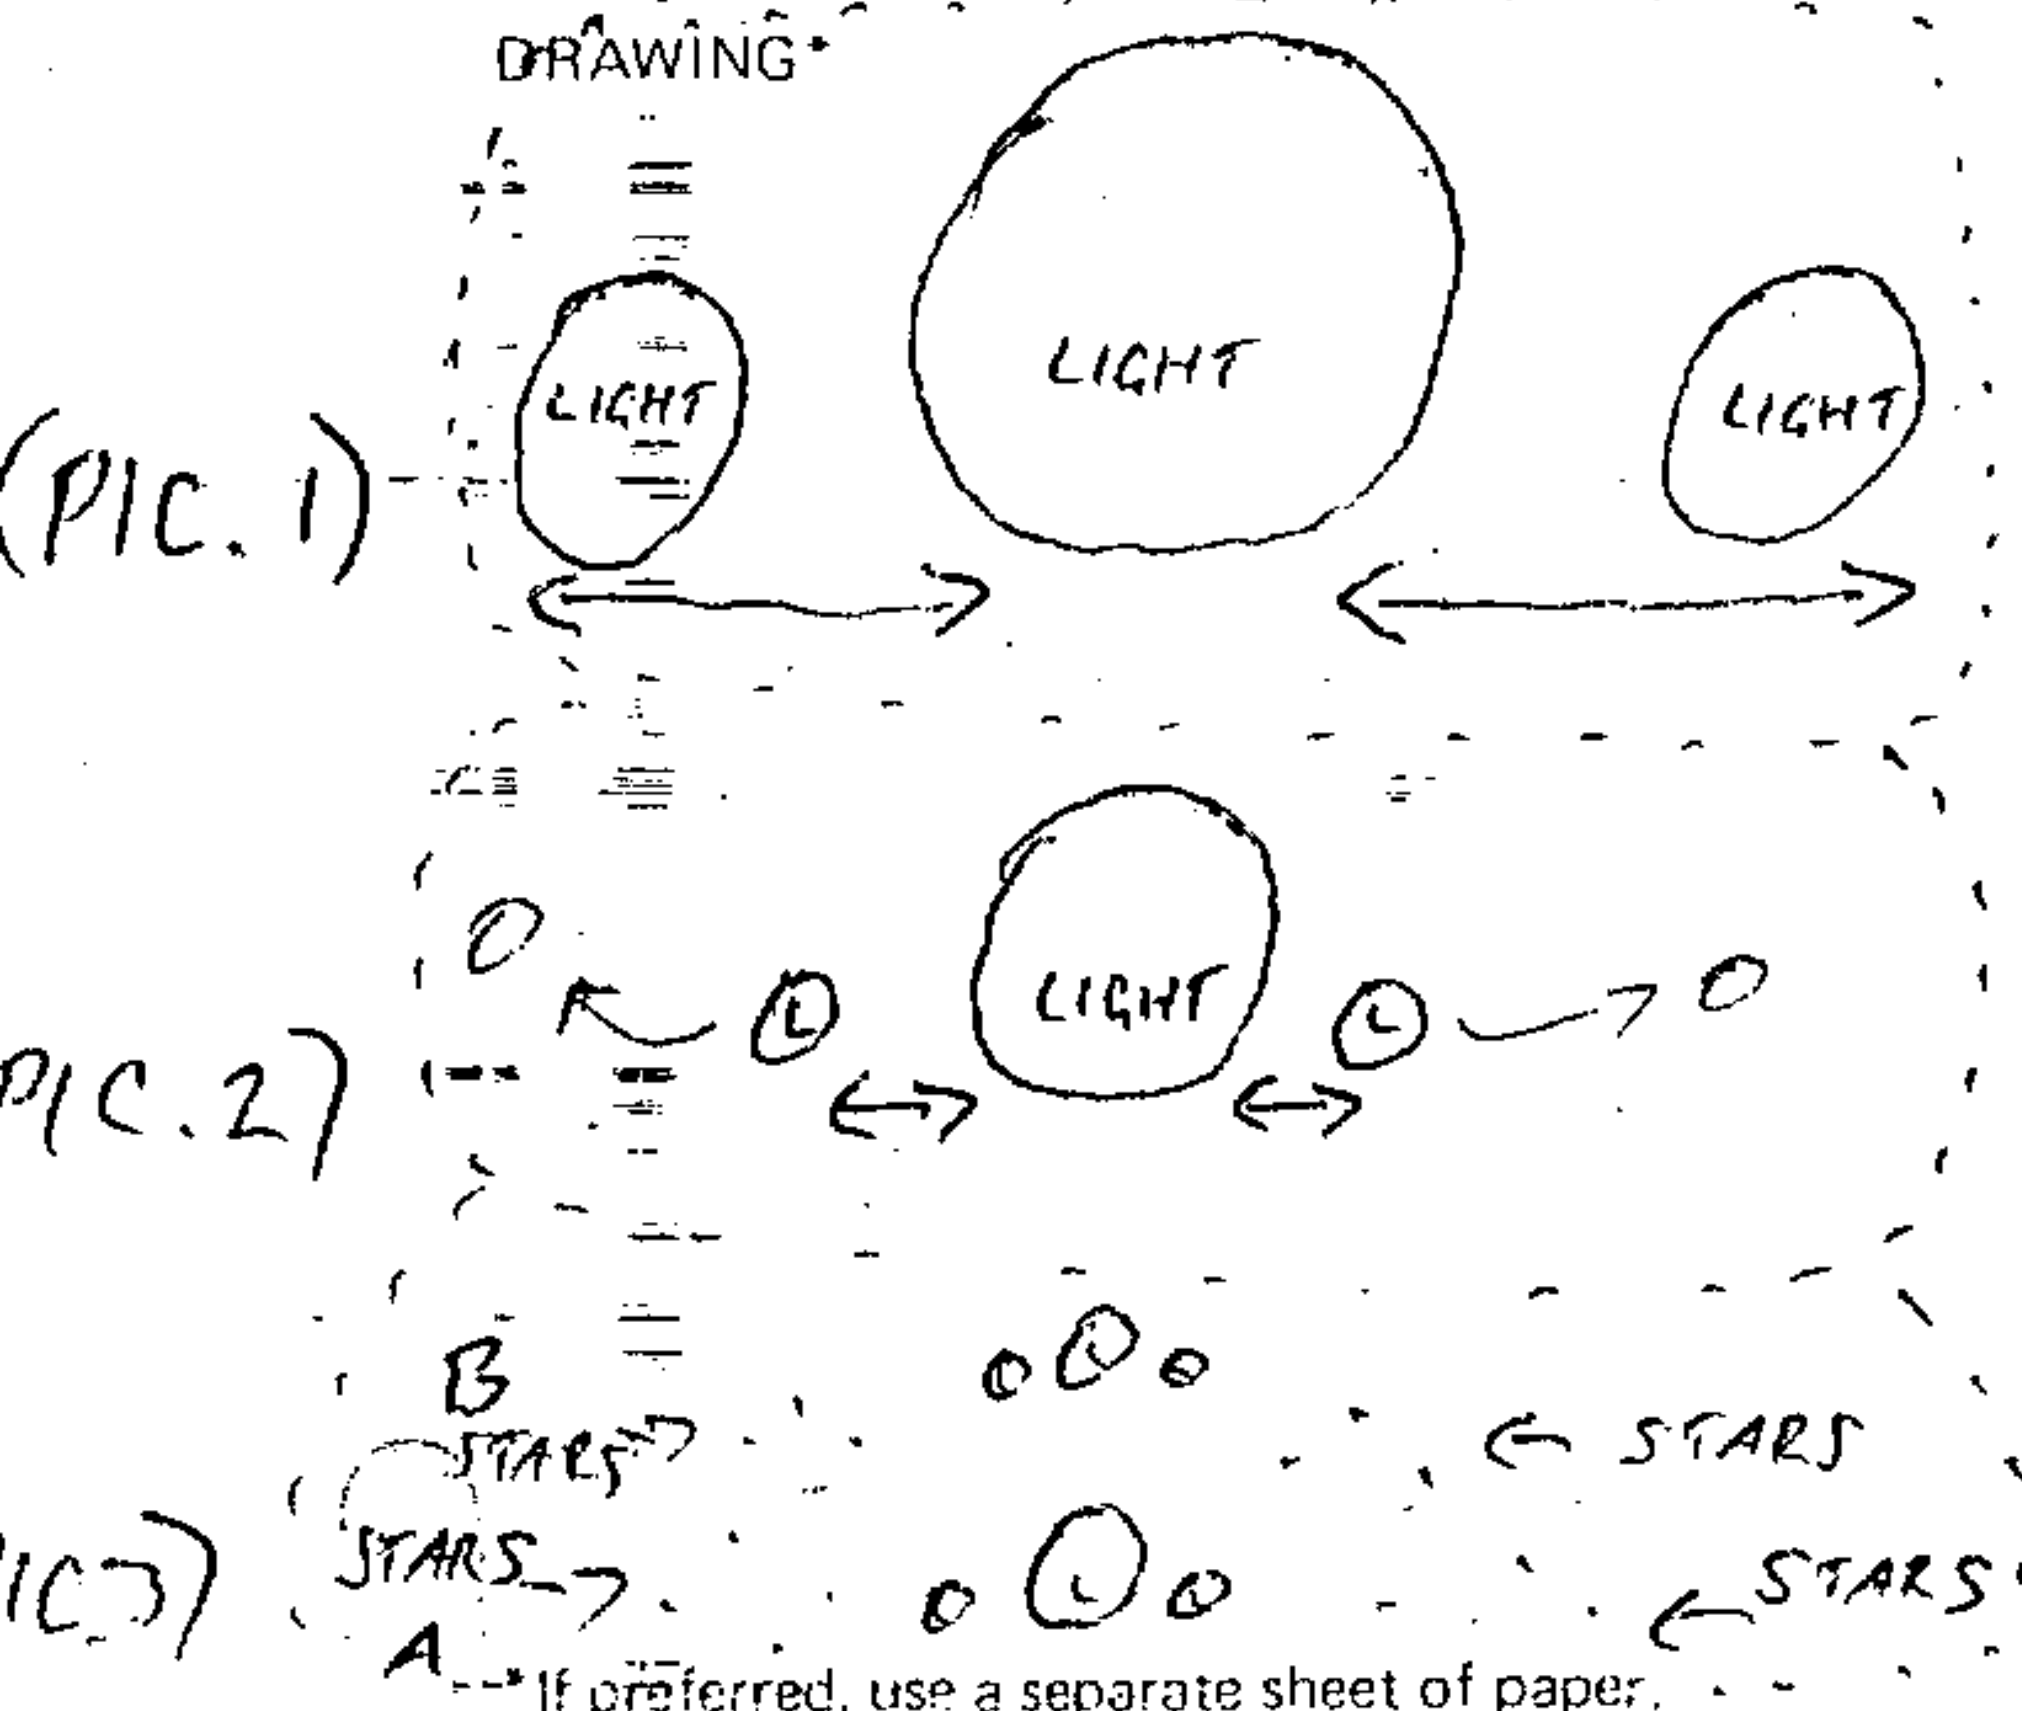 DRAWING*
LIGHT
LIGHT
LIGHT
(PIC. 1)
LIGHT
L
L
PIC. 2)
L
B
STARS
STARS
L
STARS
STARS
A
*If preferred, use a separate sheet of paper.